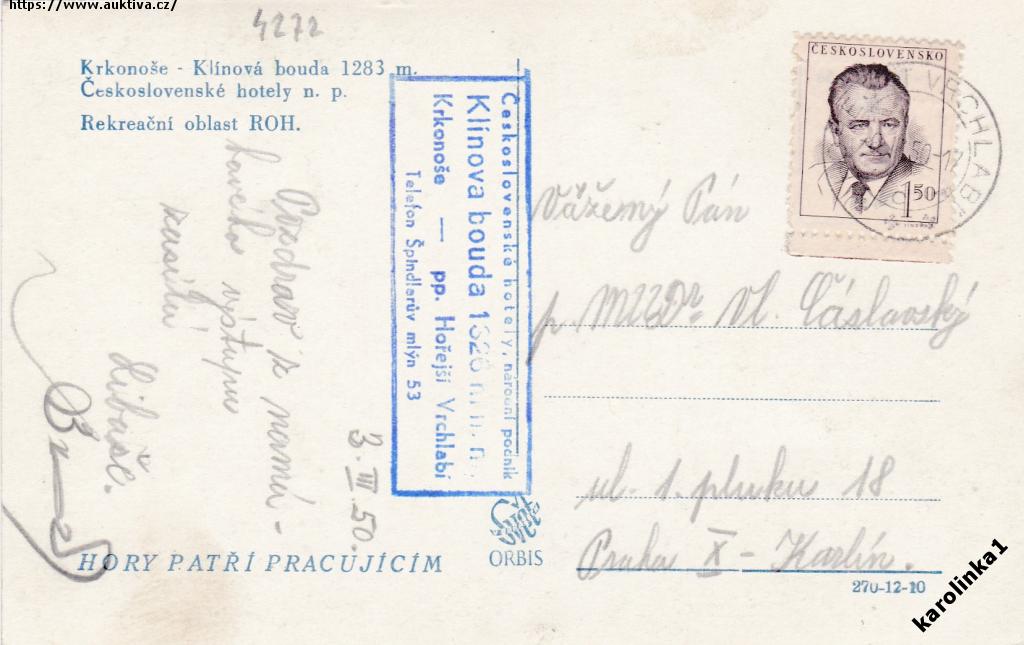 https://www.auktiva.cz/
4272
Krkonoše - Klínová bouda 1283 m.
Československé hotely n. p.
Rekreační oblast ROH.
Pozdrav z namá-
havého výstupu
zasílá
Libuše.
3. III. 50.
Československé hotely, národní podnik
Klínova bouda 1328 m n.
Krkonoše — pp. Hořejší Vrchlabí
Telefon Špindlerův mlýn 53
ČESKOSLOVENSKO
1 50
VRCHLABÍ
50-17
Vážený Pán
p. MUDr Vl. Čáslavský
ul. 1. pluku 18
Praha X - Karlín.
HORY PATŘÍ PRACUJÍCÍM
ORBIS
270-12-10
karolinka1